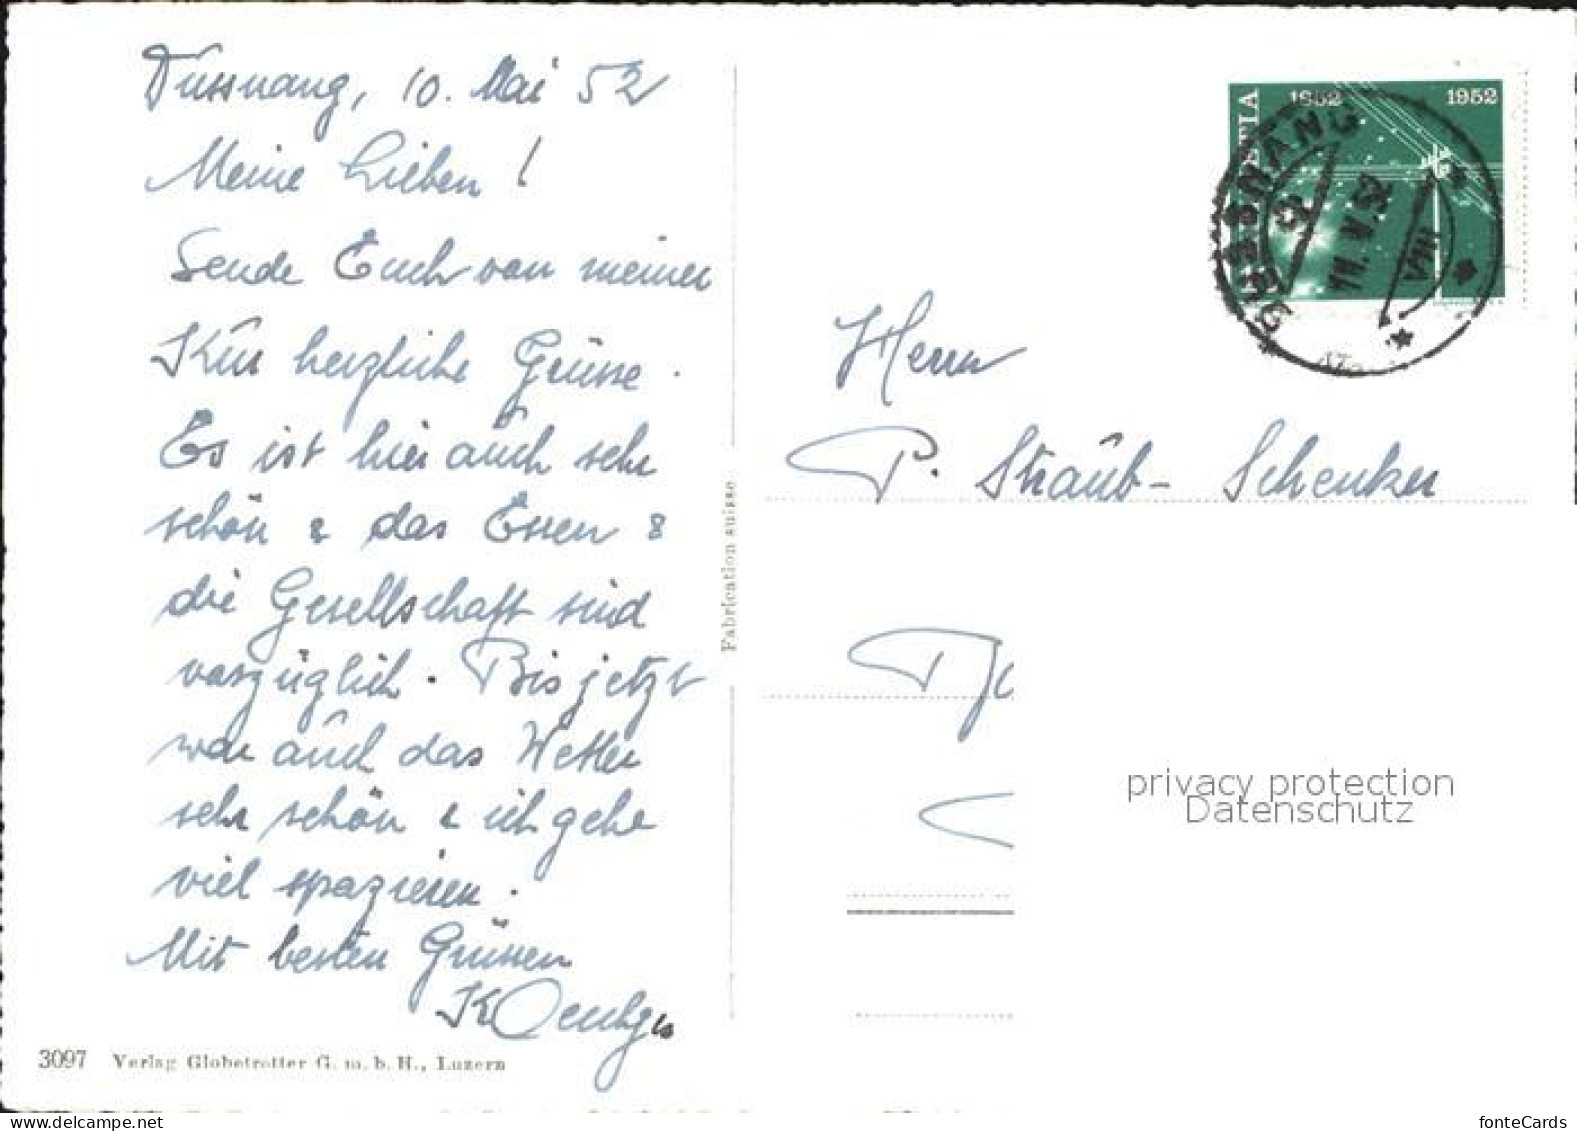 Dussnang, 10. Mai 52
Meine Lieben !
Sende Euch von meiner
Kur herzliche Grüsse.
Es ist hier auch sehr
schön & das Essen &
die Gesellschaft sind
vorzüglich. Bis jetzt
war auch das Wetter
sehr schön & ich gehe
viel spazieren.
Mit besten Grüssen
3097 Verlag Globetrotter G. m. b. H., Luzern
Fabrication suisse
HELVETIA
1852 1952
DUSSNANG
VIII
Herrn
P. Straub-Schenker
privacy protection
Datenschutz
fonteCards
www.delcampe.net